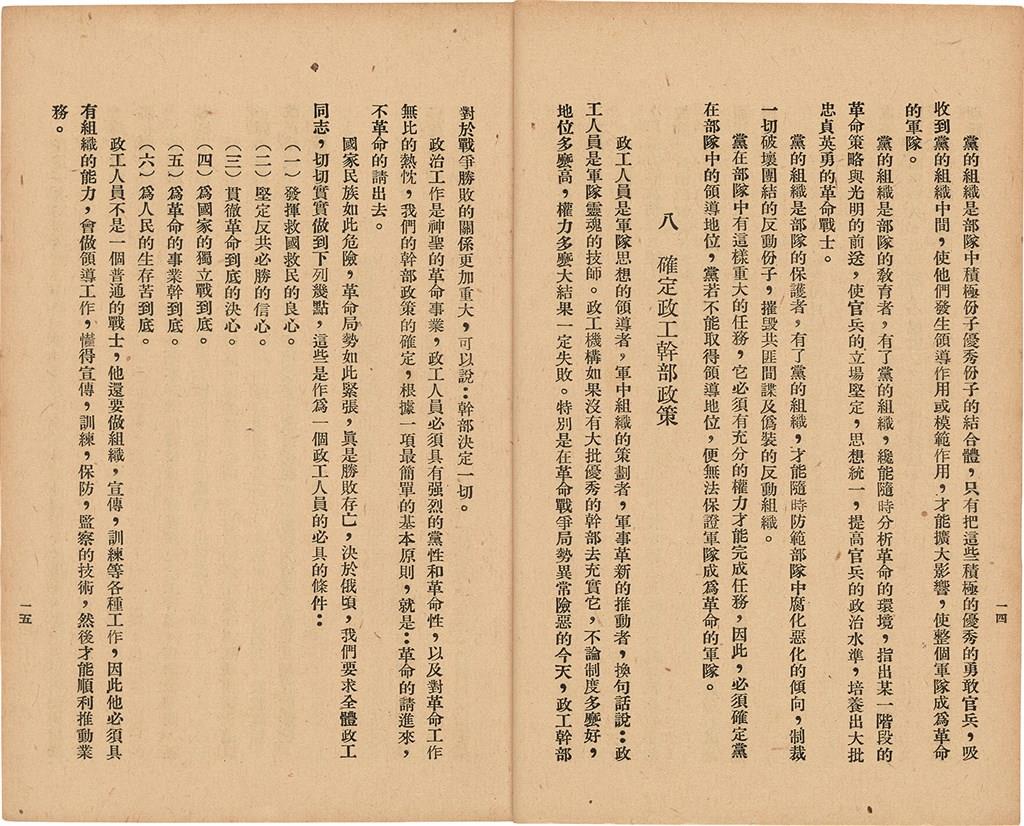 黨的組織是部隊中積極份子優秀份子的結合體，只有把這些積極的優秀的勇敢官兵，吸
收到黨的組織中間，使他們發生領導作用或模範作用，才能擴大影響，使整個軍隊成爲革命
的軍隊。
黨的組織是部隊的敎育者，有了黨的組織，纔能隨時分析革命的環境，指出某一階段的
革命策略與光明的前送，使官兵的立場堅定，思想統一，提高官兵的政治水準，培養出大批
忠貞英勇的革命戰士。
黨的組織是部隊的保護者，有了黨的組織，才能隨時防範部隊中腐化惡化的傾向，制裁
一切破壞團結的反動份子，摧毀共匪間諜及僞裝的反動組織。
黨在部隊中有這樣重大的任務，它必須有充分的權力才能完成任務，因此，必須確定黨
在部隊中的領導地位，黨若不能取得領導地位，便無法保證軍隊成爲革命的軍隊。
八　確定政工幹部政策
政工人員是軍隊思想的領導者，軍中組織的策劃者，軍事革新的推動者，換句話說：政
工人員是軍隊靈魂的技師。政工機構如果沒有大批優秀的幹部去充實它，不論制度多麼好，
地位多麼高，權力多麼大結果一定失敗。特別是在革命戰爭局勢異常險惡的今天，政工幹部
一四
對於戰爭勝敗的關係更加重大，可以說：幹部決定一切。
政治工作是神聖的革命事業，政工人員必須具有强烈的黨性和革命性，以及對革命工作
無比的熱忱，我們的幹部政策的確定，根據一項最簡單的基本原則，就是：革命的請進來，
不革命的請出去。
國家民族如此危險，革命局勢如此緊張，眞是勝敗存亡，決於俄頃，我們要求全體政工
同志，切切實實做到下列幾點，這些是作爲一個政工人員的必具的條件：
（一）發揮救國救民的良心。
（二）堅定反共必勝的信心。
（三）貫徹革命到底的決心。
（四）爲國家的獨立戰到底。
（五）爲革命的事業幹到底。
（六）爲人民的生存苦到底。
政工人員不是一個普通的戰士，他還要做組織，宣傳，訓練等各種工作，因此他必須具
有組織的能力，會做領導工作，懂得宣傳，訓練，保防，監察的技術，然後才能順利推動業
務。
一五